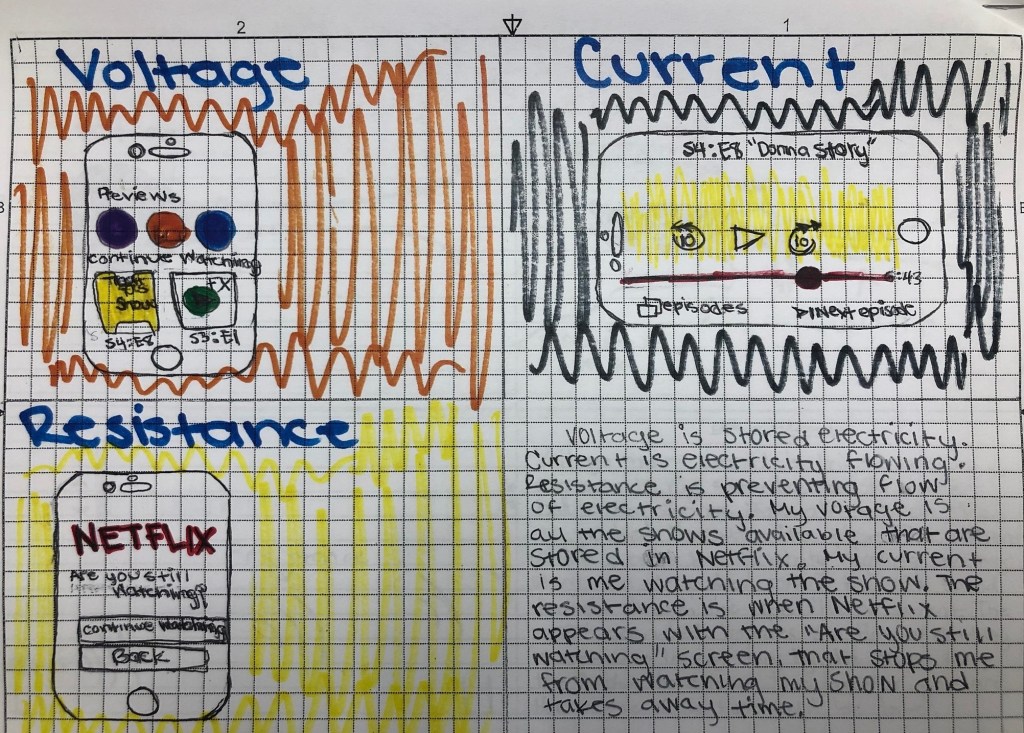 2
1
Voltage
Previews
continue Watching
That 70s Show
FX
S4:E8
S3:E1
Current
S4:E8 "Donna Story"
10
10
6:43
episodes
Next episode
Resistance
NETFLIX
Are you still
Watching?
continue watching
Back
Voltage is stored electricity.
Current is electricity flowing.
Resistance is preventing flow
of electricity. My voltage is
all the shows available that are
stored in Netflix. My current
is me watching the show. The
resistance is when Netflix
appears with the "Are you still
watching" screen, that stops me
from watching my show and
takes away time.